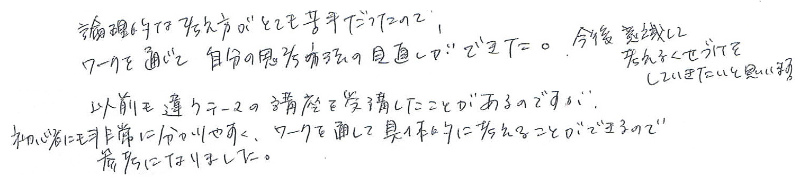 論理的な考え方がとても苦手だったので、
ワークを通じて 自分の思考方法の見直しができた。今後 意識して
考えるくせづけを
していきたいと思います
以前も違うテーマの講座を受講したことがあるのですが、
初心者にも非常に分かりやすく、ワークを通して具体的に考えることができるので
参考になりました。